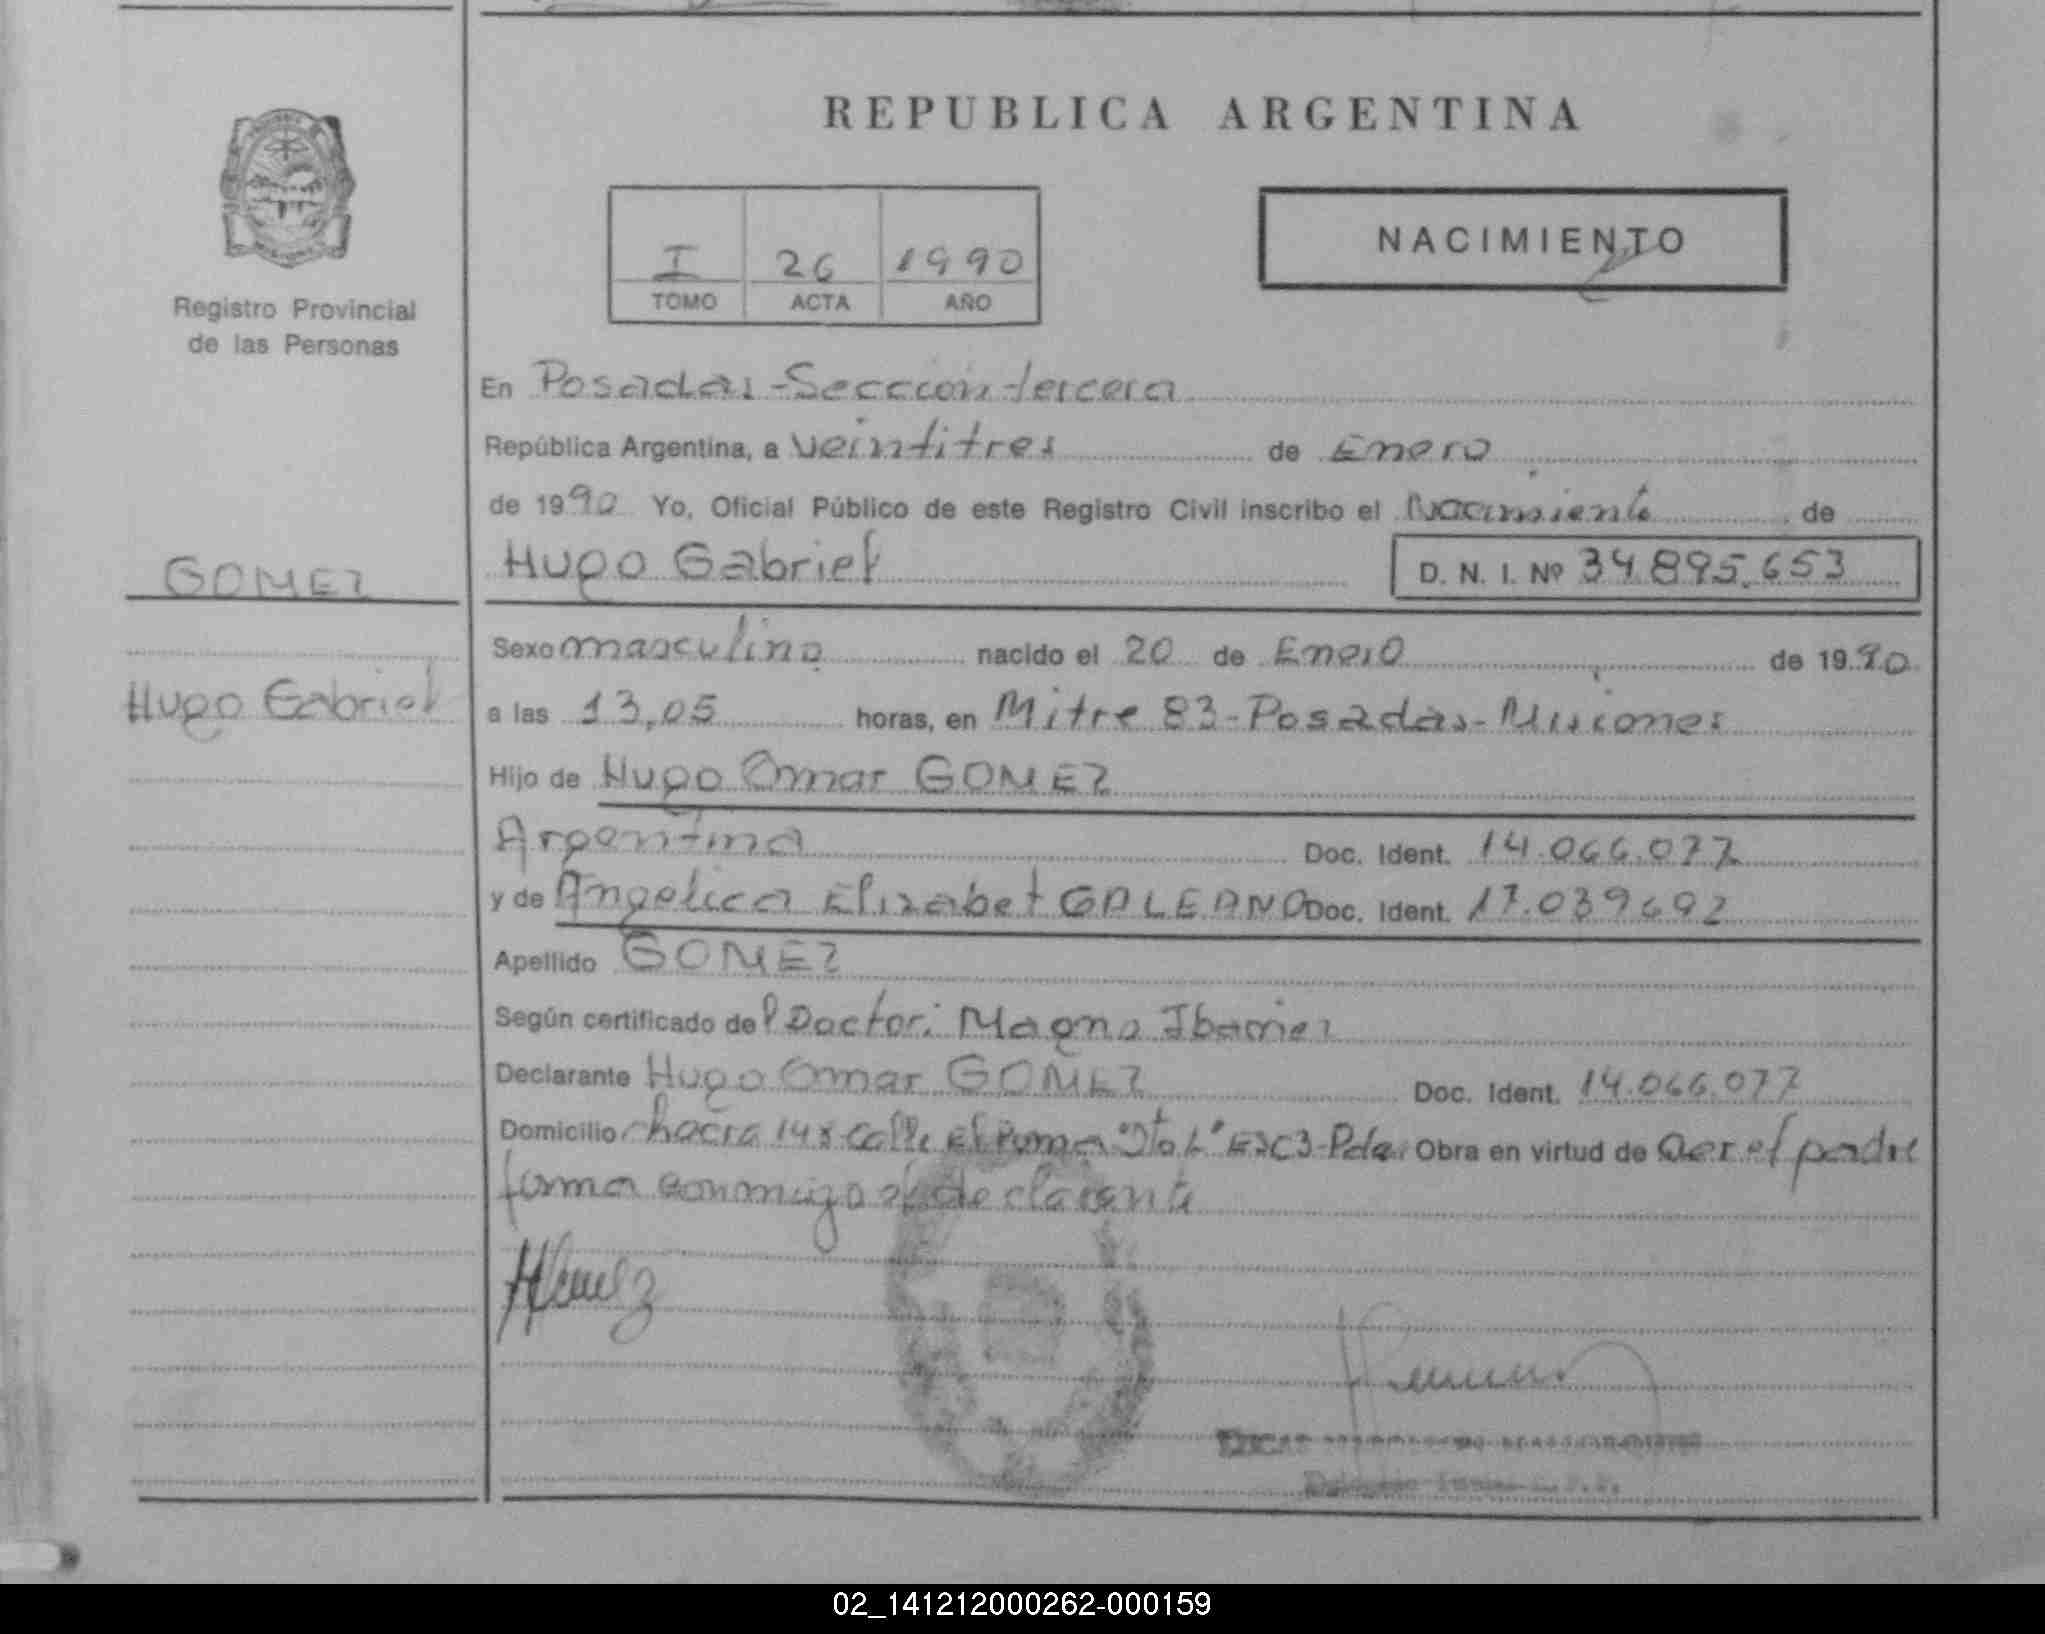 REPUBLICA ARGENTINA
NACIMIENTO
I 26 1990
TOMO ACTA AÑO
Registro Provincial
de las Personas
GOMEZ
Hugo Gabriel
En Posadas - Sección tercera
República Argentina, a veintitres de Enero
de 1990 Yo, Oficial Público de este Registro Civil inscribo el Nacimiento de
Hugo Gabriel D. N. I. Nº 34.895.653
Sexo masculino nacido el 20 de Enero de 1990
a las 13,05 horas, en Mitre 83 - Posadas - Misiones
Hijo de Hugo Omar GOMEZ
Argentina Doc. Ident. 14.066.077
y de Angelica Elizabet GALEANO Doc. Ident. 17.039692
Apellido GOMEZ
Según certificado del Doctor: Magno Ibañez
Declarante Hugo Omar GOMEZ Doc. Ident. 14.066.077
Domicilio chacra 148 calle El Puma Obra en virtud de ser el padre
firma conmigo el declarante
02_141212000262-000159